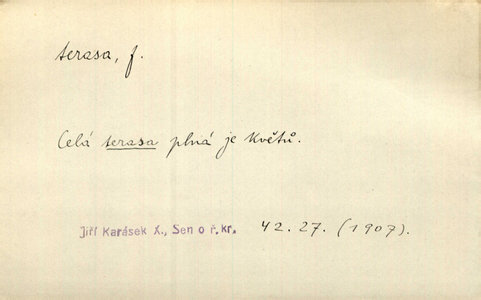 terasa, f.
Celá terasa plná je květů.
Jiří Karásek X., Sen o ř.kr. 42.27. (1907).